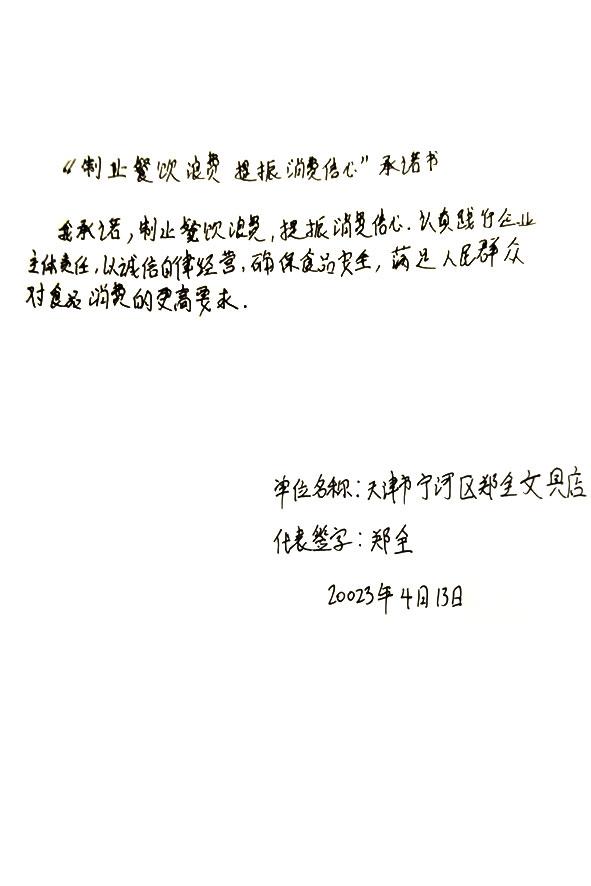 “制止餐饮浪费 提振消费信心”承诺书
我承诺,制止餐饮浪费,提振消费信心.认真践行企业
主体责任,以诚信自律经营,确保食品安全,满足人民群众
对食品消费的更高要求.
单位名称:天津市宁河区郑全文具店
代表签字:郑全
20023年4月13日